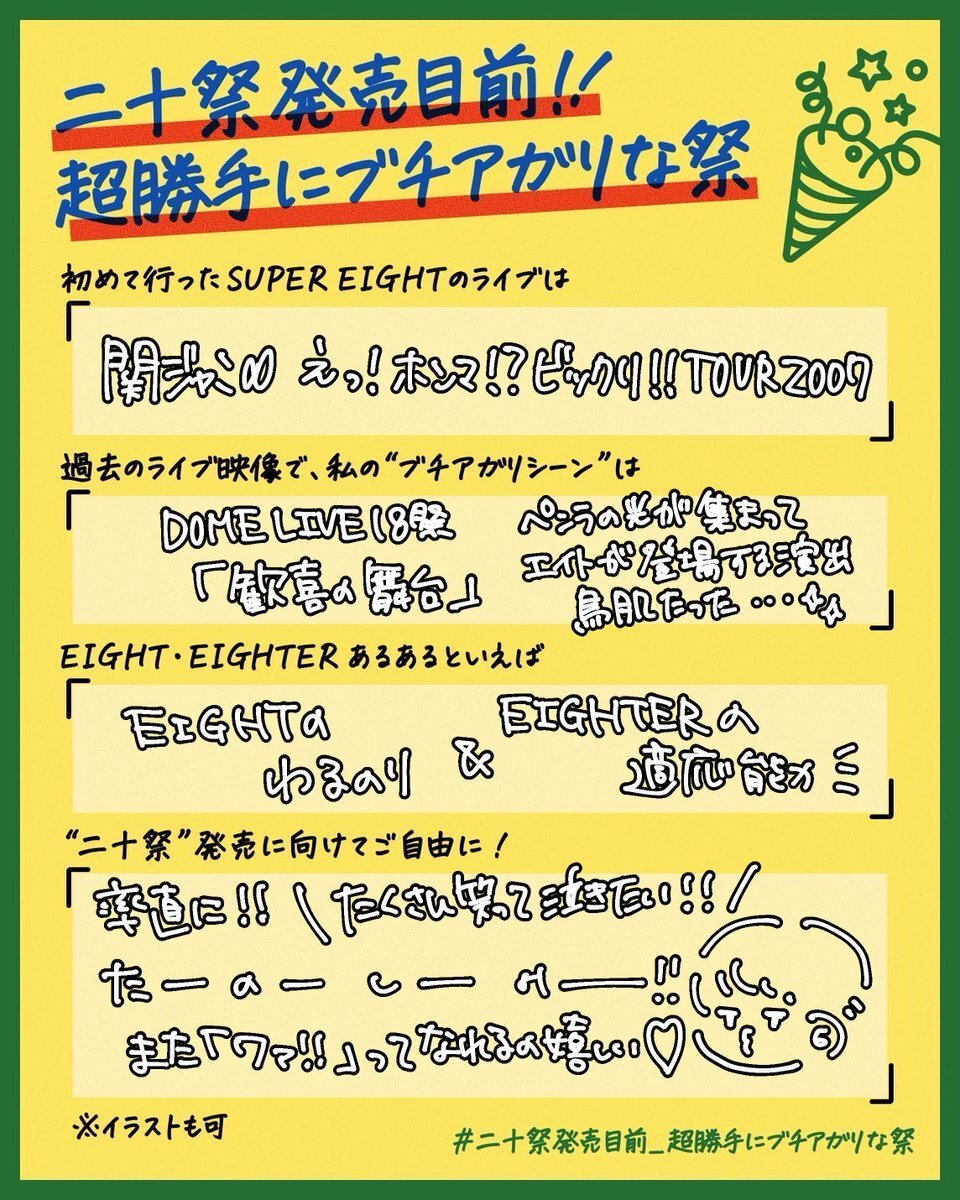 二十祭発売目前!!
超勝手にブチアガリな祭
初めて行ったSUPER EIGHTのライブは
関ジャニ∞ えっ!ホンマ!?ビックリ!!TOUR2007
過去のライブ映像で、私の“ブチアガリシーン”は
DOME LIVE 18祭
「歓喜の舞台」
ペンラの光が集まって
エイトが登場する演出
鳥肌たった…✨
EIGHT・EIGHTERあるあるといえば
EIGHTの
わるのり
&
EIGHTERの
適応能力
“二十祭”発売に向けてご自由に!
率直に!! \たくさん笑って泣きたい!!/
たーのーしーみー!!
また「ワァ!!」ってなれるの嬉しい♡
※イラストも可
#二十祭発売目前_超勝手にブチアガリな祭